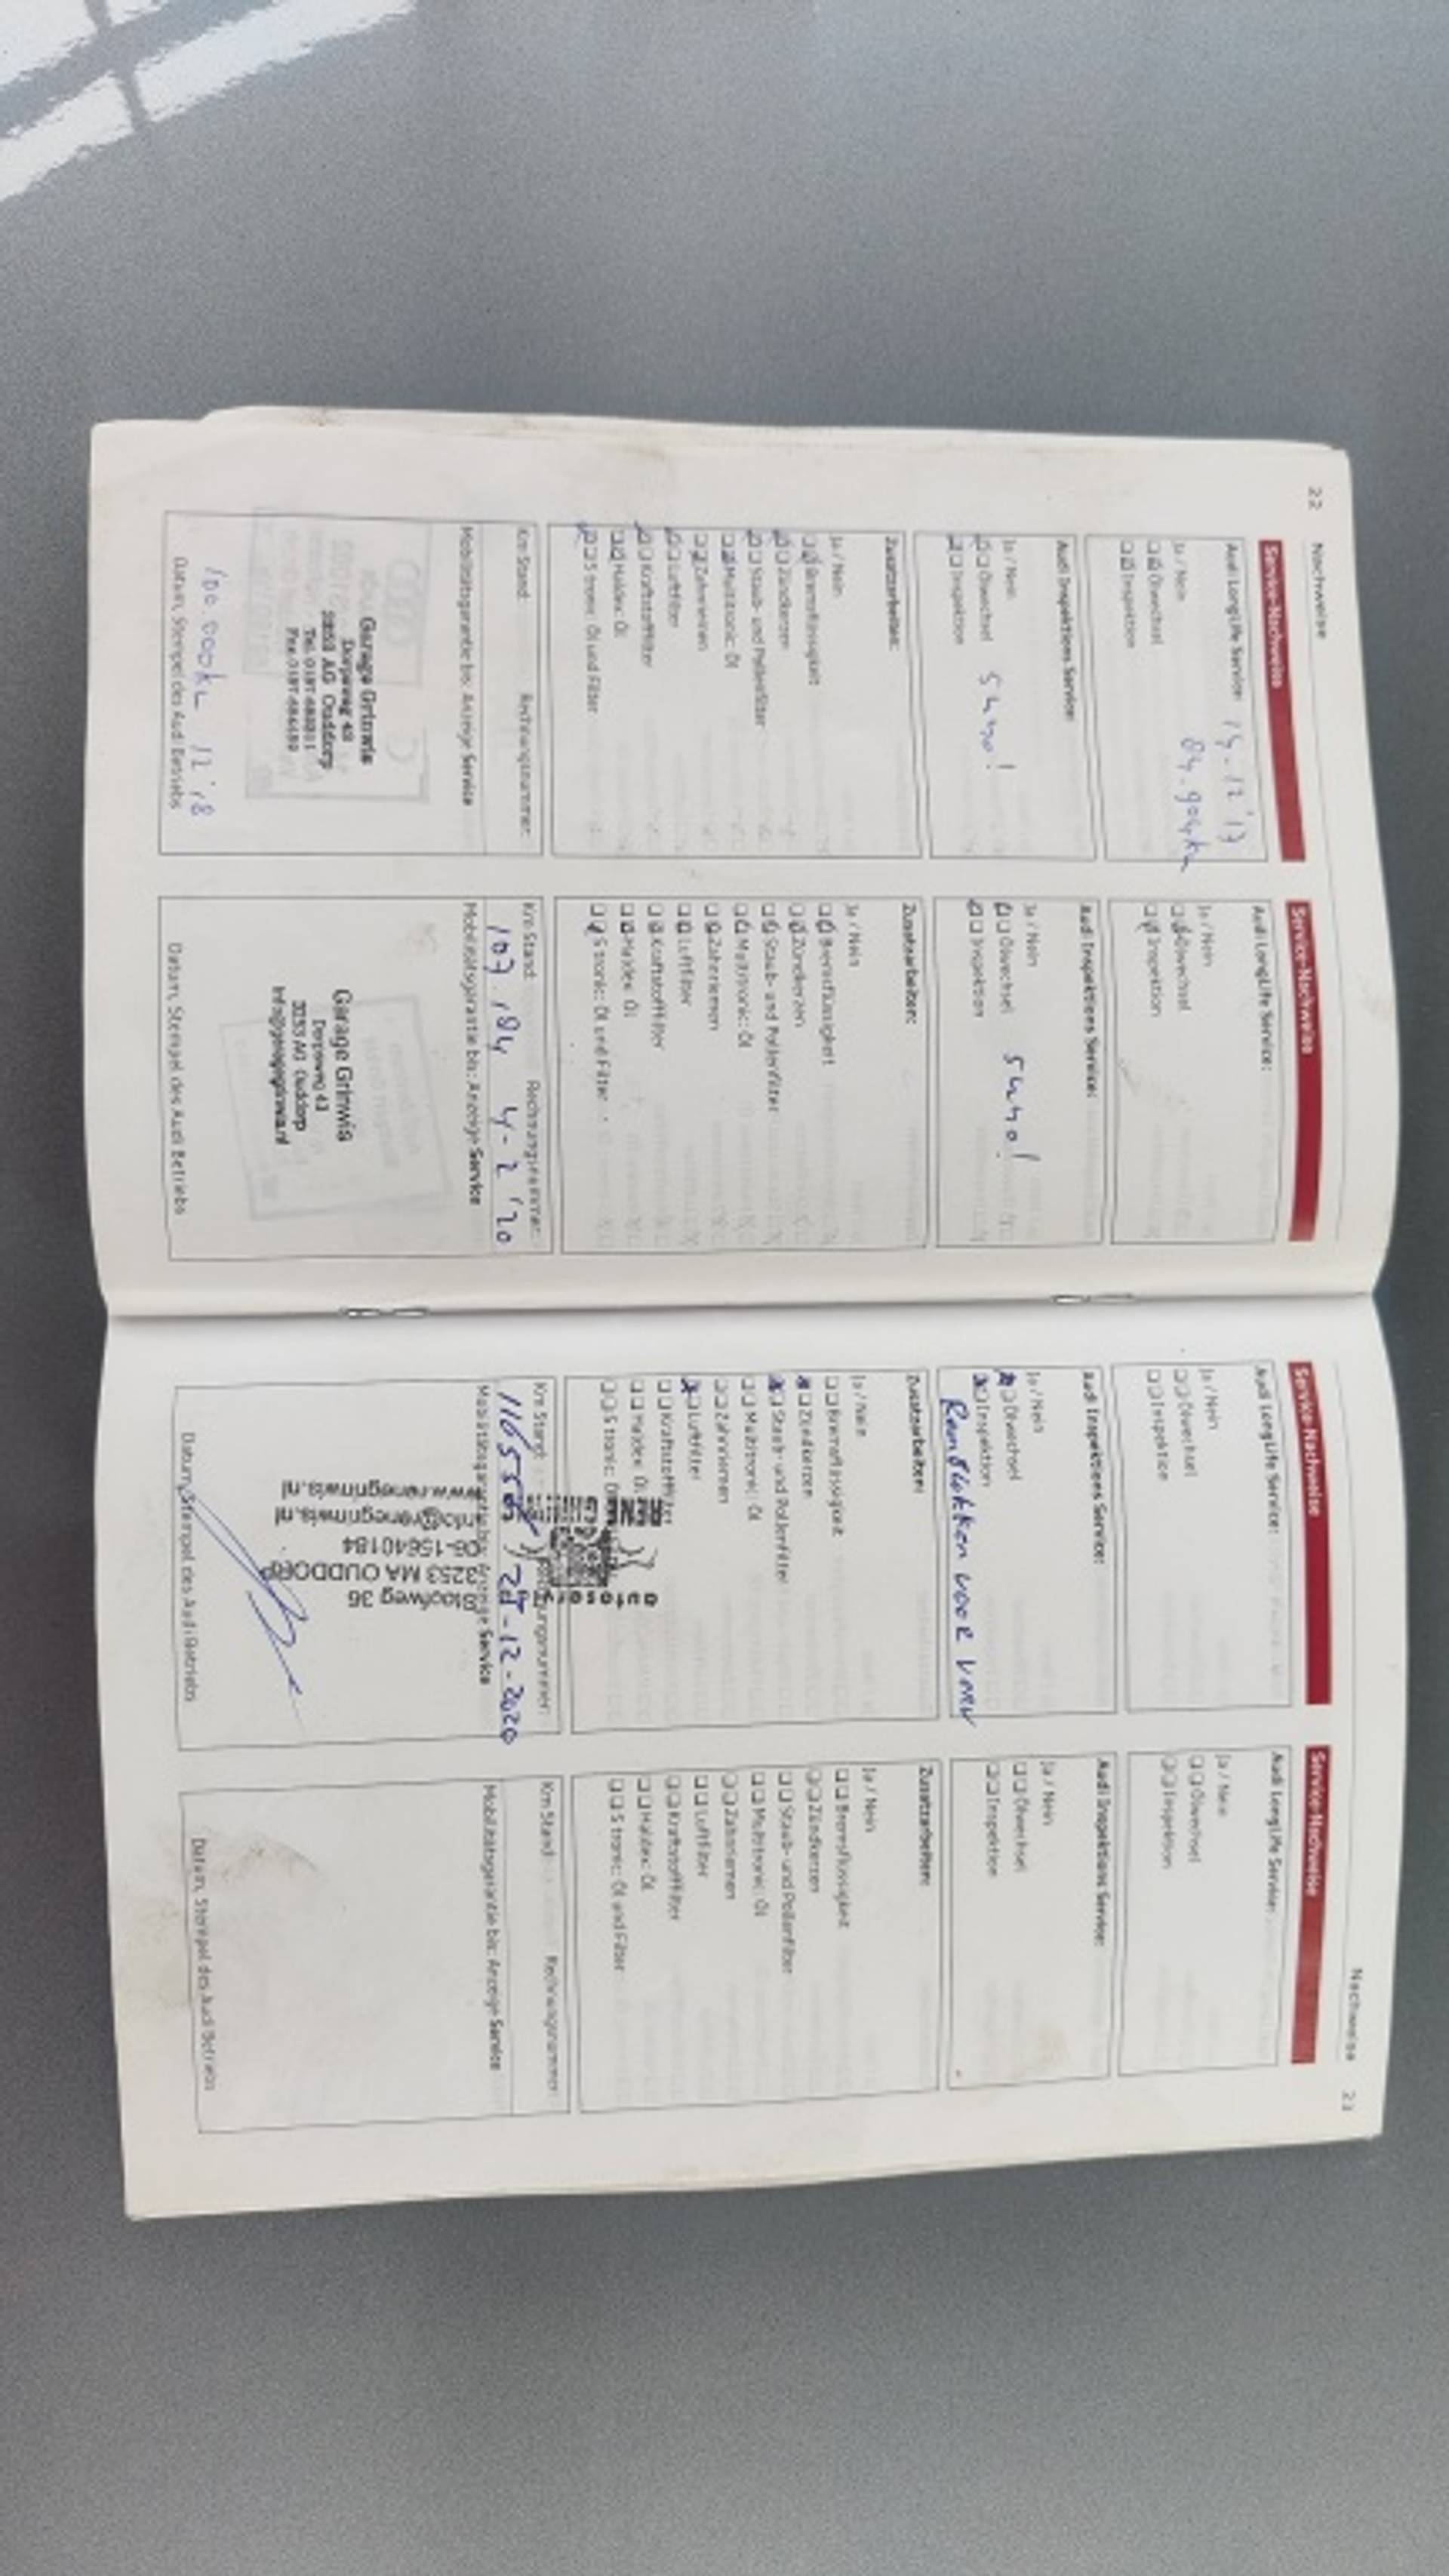 22
Nachweise
Service-Nachweise
Audi LongLife Service:
14-12'17
84.904km
Ja / Nein
Ölwechsel
Inspektion
Audi Inspektions Service:
Ja / Nein
Ölwechsel
5w40!
Inspektion
Zusatzarbeiten:
Ja / Nein
Bremsflüssigkeit
Zündkerzen
Staub- und Pollenfilter
Multitronic: Öl
Zahnriemen
Luftfilter
Kraftstofffilter
Haldex: Öl
S tronic: Öl und Filter
Km Stand:
Rechnungsnummer:
Mobilitätsgarantie bis: Anzeige Service
Garage Grinwis
Dorpsweg 43
3253 AG Ouddorp
100.000km 12'18
Datum, Stempel des Audi Betriebs
Service-Nachweise
Audi LongLife Service:
Ja / Nein
Ölwechsel
Inspektion
Audi Inspektions Service:
Ja / Nein
Ölwechsel
5w40!
Inspektion
Zusatzarbeiten:
Ja / Nein
Bremsflüssigkeit
Zündkerzen
Staub- und Pollenfilter
Multitronic: Öl
Zahnriemen
Luftfilter
Kraftstofffilter
Haldex: Öl
S tronic: Öl und Filter
Km Stand:
Rechnungsnummer:
107184 4-2'20
Mobilitätsgarantie bis: Anzeige Service
Garage Grinwis
Dorpsweg 43
3253 AG Ouddorp
info@garagegrinwis.nl
Datum, Stempel des Audi Betriebs
Service-Nachweise
Audi LongLife Service:
Ja / Nein
Ölwechsel
Inspektion
Audi Inspektions Service:
Ja / Nein
Ölwechsel
Inspektion
Remblokken voor
Zusatzarbeiten:
Ja / Nein
Bremsflüssigkeit
Zündkerzen
Staub- und Pollenfilter
Multitronic: Öl
Zahnriemen
Luftfilter
Kraftstofffilter
Haldex: Öl
S tronic: Öl
Km Stand:
28-12-2020
Mobilitätsgarantie bis: Anzeige Service
3253 MA OUDDORP
06-15640184
info@renegrinwis.nl
www.renegrinwis.nl
Datum, Stempel des Audi Betriebs
Nachweise
23
Service-Nachweise
Audi LongLife Service:
Ja / Nein
Ölwechsel
Inspektion
Audi Inspektions Service:
Ja / Nein
Ölwechsel
Inspektion
Zusatzarbeiten:
Ja / Nein
Bremsflüssigkeit
Zündkerzen
Staub- und Pollenfilter
Multitronic: Öl
Zahnriemen
Luftfilter
Kraftstofffilter
Haldex: Öl
S tronic: Öl und Filter
Km Stand:
Rechnungsnummer:
Mobilitätsgarantie bis: Anzeige Service
Datum, Stempel des Audi Betriebs